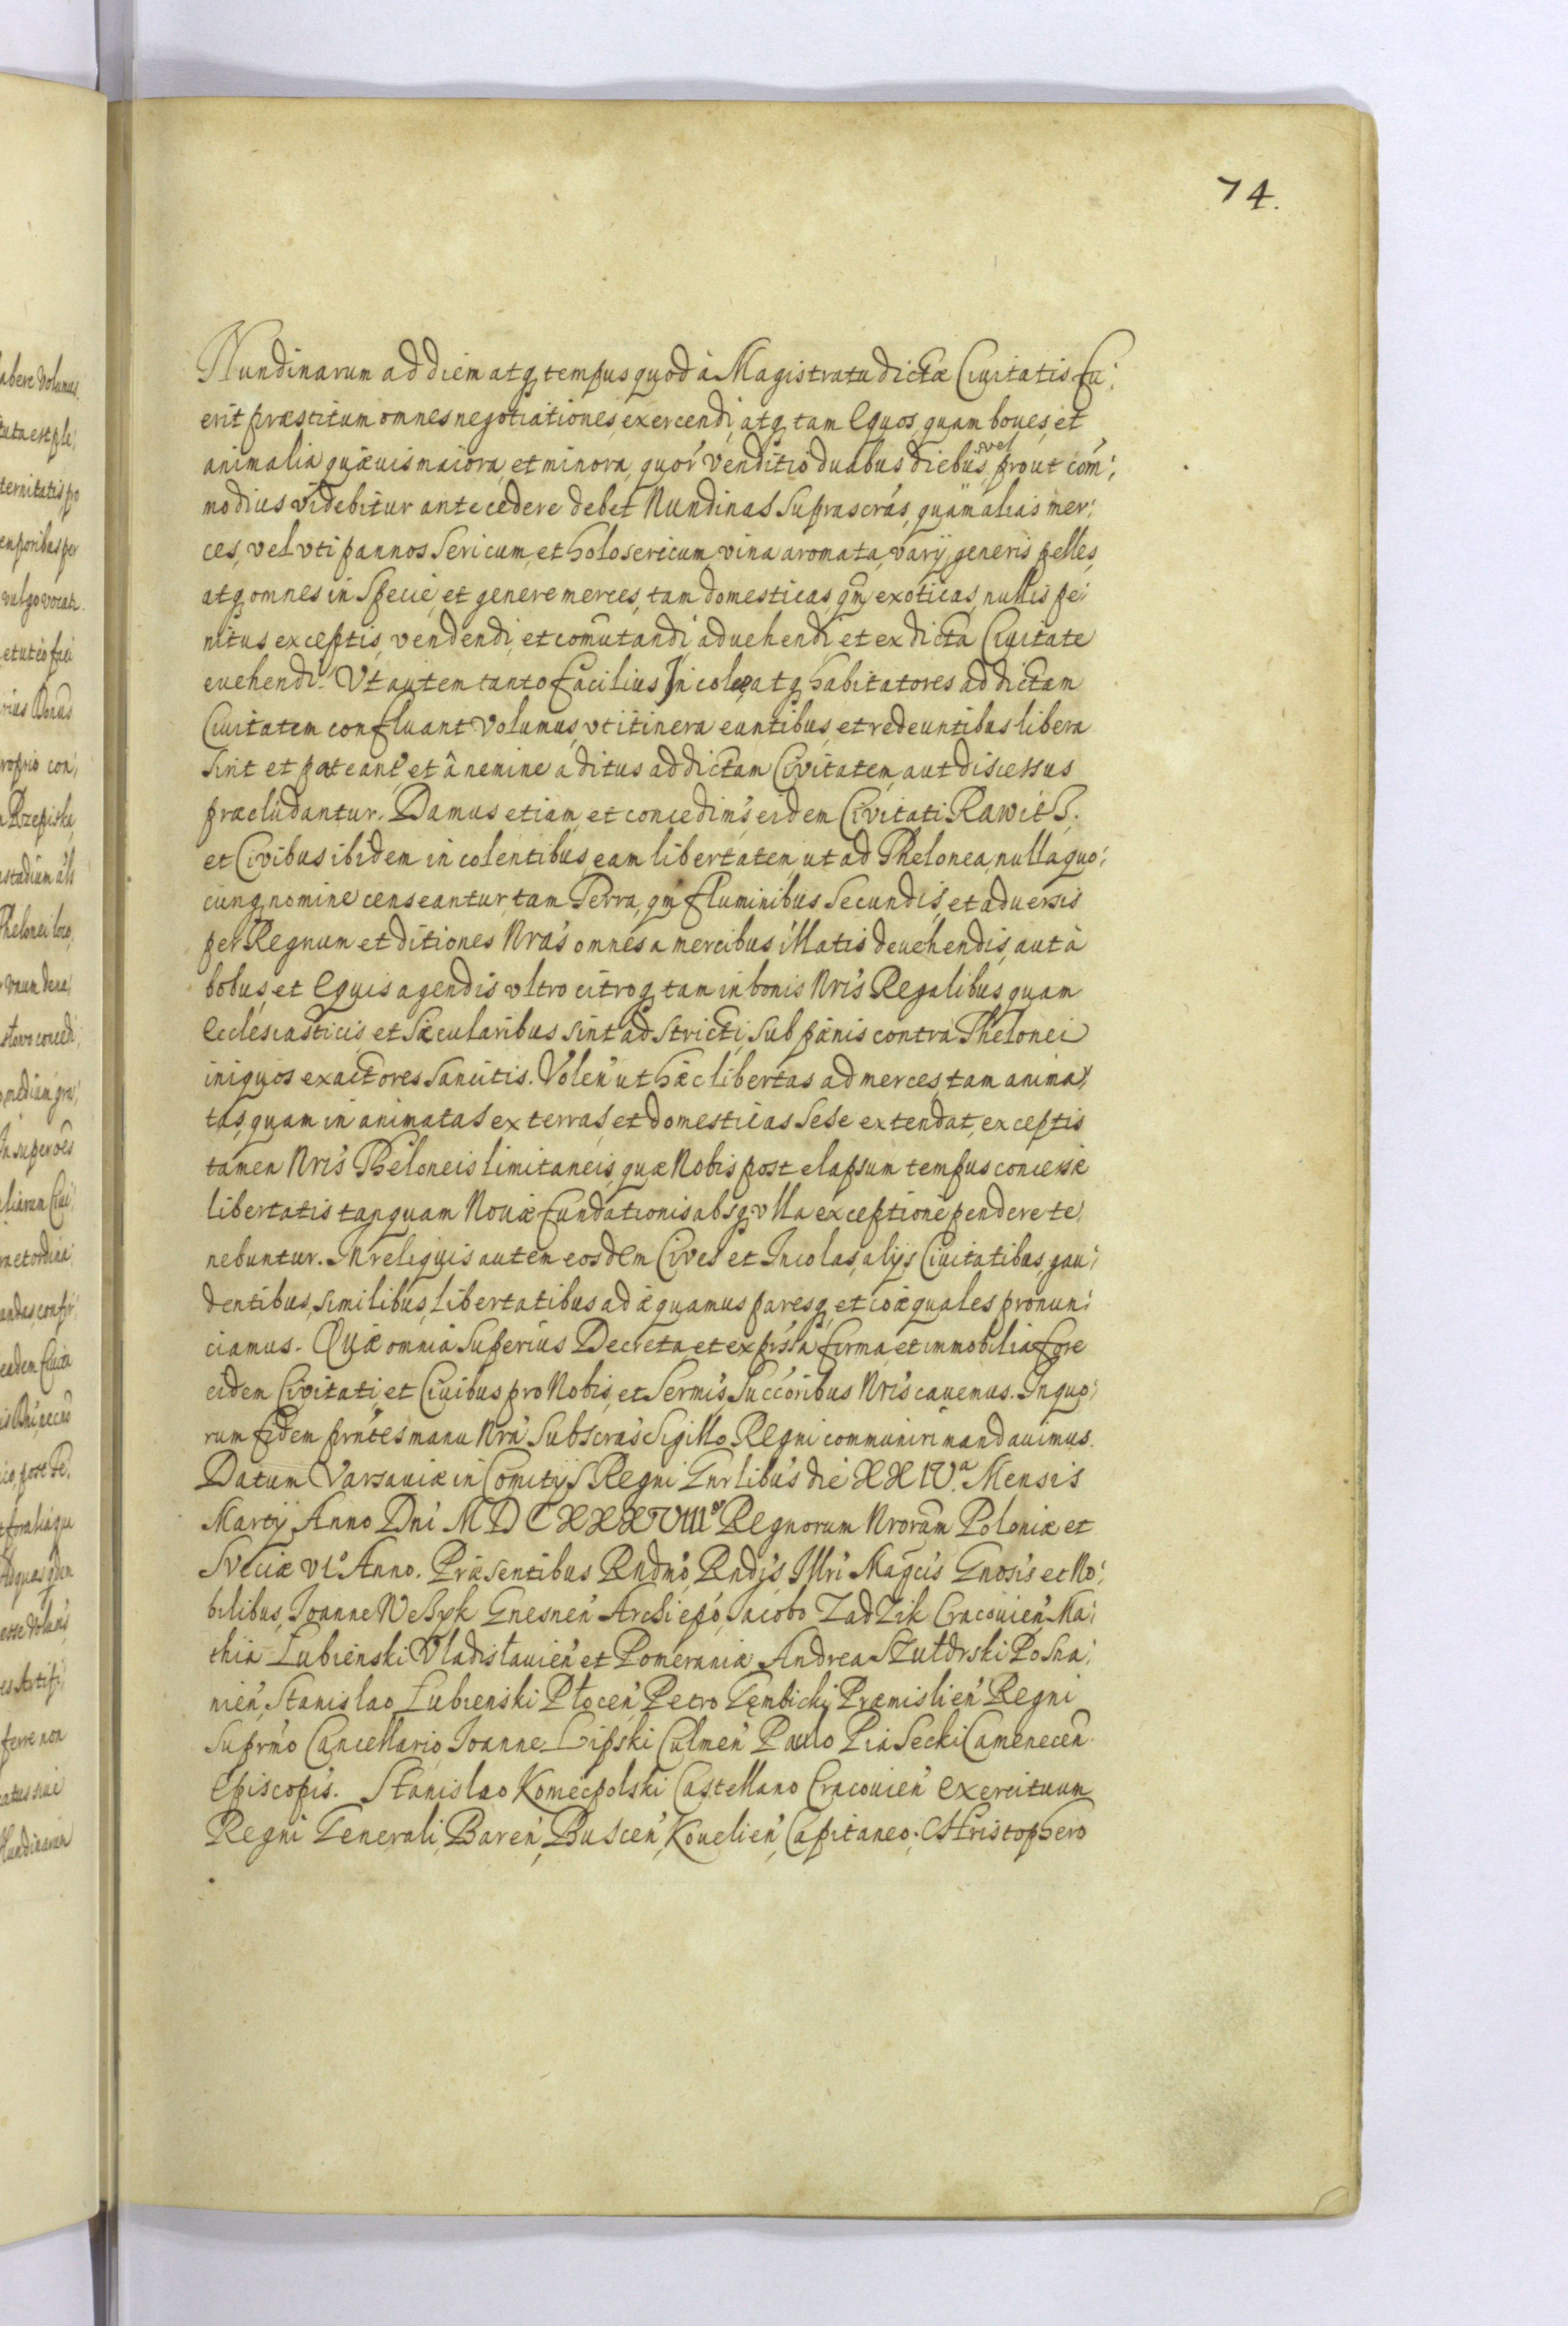 74.
Nundinarum ad diem atq₃ tempus quod à Magistratu dictæ Ciuitatis fu:
erit præstitum omnes negotiationes, exercendi, atq₃ tam Equos, quam boues, et
animalia quæuis maiora, et minora, quor' venditio duabus diebus, vel prout com̄:
modius videbitur antecedere debet Nundinas suprascrás, quàm alias mer:
ces, vel vti pannos sericum, et holosericum, vina aromata, varÿ generis pelles,
atq₃ omnes in specie, et genere merces, tam domesticas, qm̄ exoticas, nullis pe:
nitus exceptis, vendendi, et com̄utandi, aduehendi, et ex dicta Ciuitate
euehendi. Vt autem tanto facilius Incolæ atq₃ habitatores ad dictam
Ciuitatem confluant volumus, vt itinera euntibus, et redeuntibus libera
sint et pateant, et â nemine aditus ad dictam Civitatem, aut discessus
præcludantur. Damus etiam, et concedim's eidem Civitati Rawicz,
et Civibus ibidem incolentibus, eam libertatem, ut ad Thelonea, nulla quo:
cunq₃ nomine censeantur, tam Terra, qm̄ fluminibus secundis, et aduersis
per Regnum et ditiones Nrás omnes a mercibus illatis deuehendis, aut à
bobus, et Equis agendis vltro citroq₃ tam in bonis Nrís Regalibus, quam
Ecclesiasticis et Sæcularibus sint adstricti, sub pænis contra Thelonei
iniquos exactores sancitis. Volen' ut hæc libertas ad merces, tam anima:
tas, quam inanimatas exterras, et domesticas sese extendat, exceptis
tamen Nrís Theloneis limitaneis, quæ Nobis post elapsum tempus concessæ
libertatis tanquam Nouæ fundationis absq₃ vlla exceptione pendere te:
nebuntur. In reliquis autem eosdem Cives et Incolas, alijs Ciuitatibus, gau:
dentibus, similibus, libertatibus adæquamus paresq₃ et coæquales pronun:
ciamus. Quæ omnia superius Decreta et exprssa firma, et immobilia fore
eidem Civitati, et Ciuibus pro Nobis, et Sermis Succoribus Nrís cauemus. In quo:
rum fidem prntes manu Nrá subscras Sigillo Regni communiri mandauimus.
Datum Varsauiæ in Comitÿs Regni Gnrlibus die XXIVa. Mensis
Martÿ Anno Dni M D C XXXVIIIo Regnorum Nrorum Poloniæ et
Sveciæ VIo Anno. Præsentibus Rndmo, Rndis, Illri Magcis Gnosis et No:
bilibus, Joanne Wężyk Gnesnen' Archiepo, Jacobo Zadzik Cracouien', Ma:
thia Łubieński Vladislauien' et Pomeraniæ, Andrea Szułdrski Posna:
nien', Stanislao Łubieński Płocen', Petro Gembicki Præmislien' Regni
Suprmo Cancellario, Joanne Lipski Culmen' Paulo Piasecki Camenecen'
Episcopis. Stanislao Koniecpolski Castellano Cracouien' exercituum
Regni Generali, Baren', Buscen', Kouelien', Capitaneo. Christophero